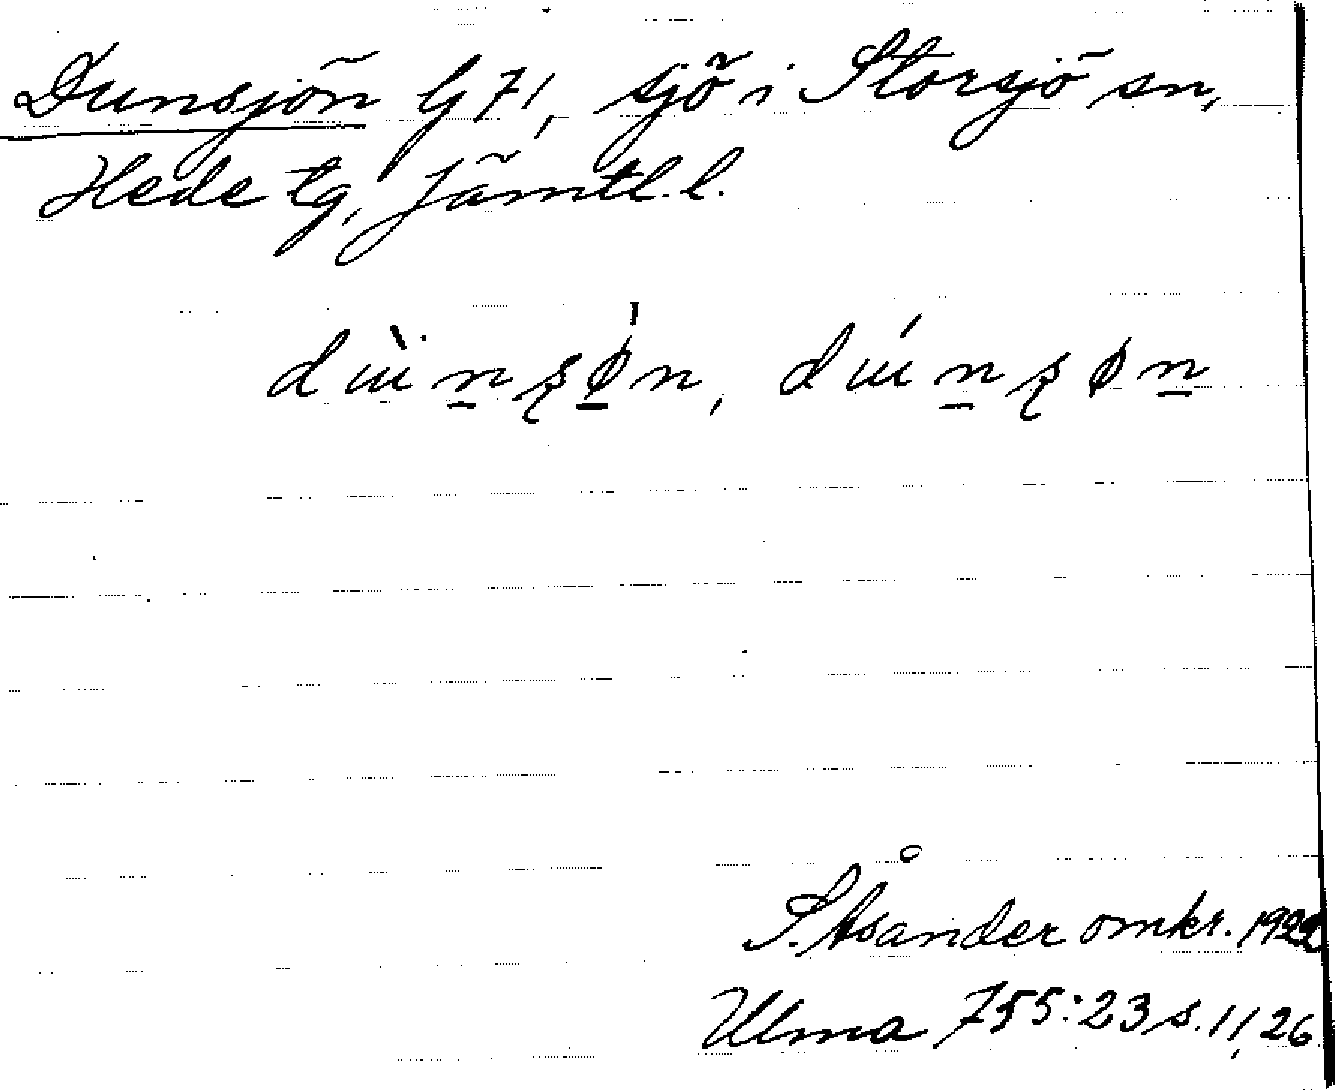 Dunsjön G 71, sjö i Storsjö sn,
Hede tg, Jämtl. l.
dɯ̀n̲ʂø̲̍n, dɯ́n̲ʂøn̲
S. Åsander omkr. 1922
Ulma 755:23 s. 11, 26